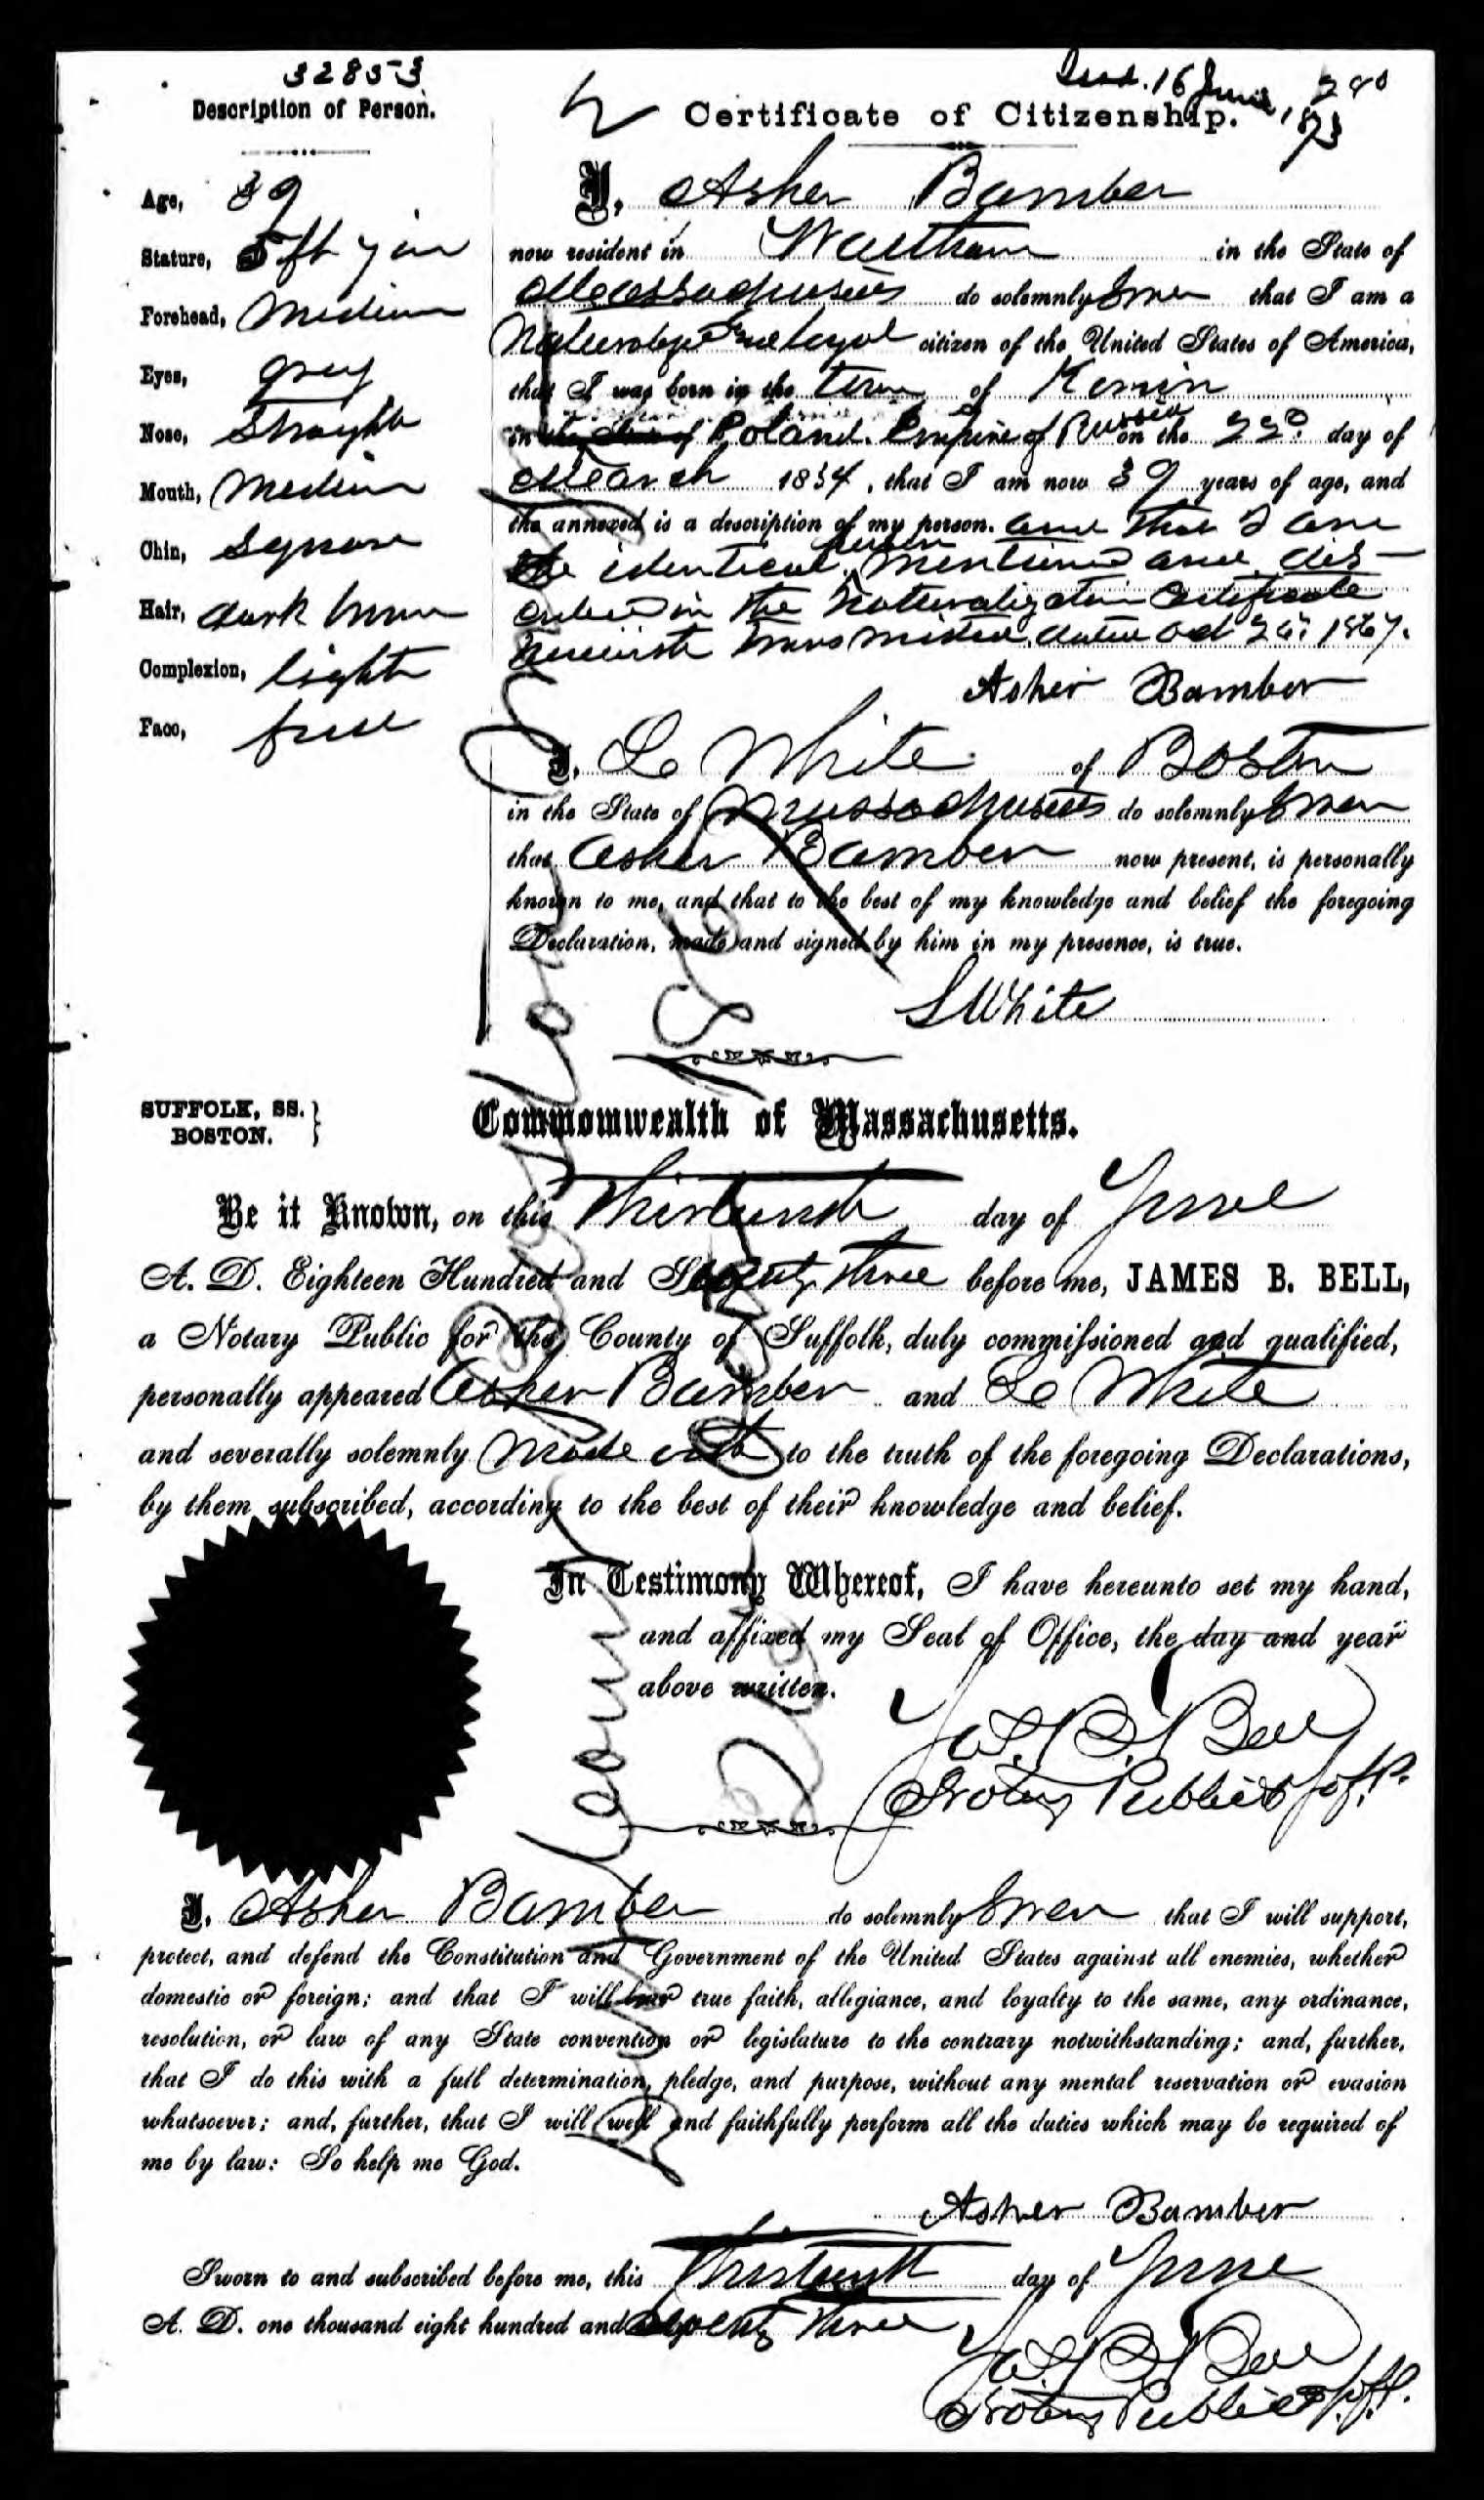 32853
Description of Person.
Age, 39
Stature, 5 ft 7 in
Forehead, Medium
Eyes, grey
Nose, Straight
Mouth, Medium
Chin, Square
Hair, dark brown
Complexion, light
Face, full
Issd. 16 June, 1873
Certificate of Citizenship.
I, Asher Bamber
now resident in Waltham in the State of
Massachusetts do solemnly swear that I am a
Naturalized and loyal citizen of the United States of America,
that I was born in the town of
in the State of Poland. Empire of Russia on the 22d. day of
March 1834, that I am now 39 years of age, and
the annexed is a description of my person. and that I am
the identical person mentioned and des-
cribed in the Naturalization Certificate
herewith transmitted, dated Oct 26. 1867.
Asher Bamber
I, White of Boston
in the State of Massachusetts do solemnly swear
that Asher Bamber now present, is personally
known to me, and that to the best of my knowledge and belief the foregoing
Declaration, made and signed by him in my presence, is true.
White
SUFFOLK, SS.
BOSTON.
Commomwealth of Massachusetts.
Be it Known, on this Thirteenth day of June
A. D. Eighteen Hundred and Seventy three before me, JAMES B. BELL,
a Notary Public for the County of Suffolk, duly commissioned and qualified,
personally appeared Asher Bamber and White
and severally solemnly made oath to the truth of the foregoing Declarations,
by them subscribed, according to the best of their knowledge and belief.
In Testimony Whereof, I have hereunto set my hand,
and affixed my Seal of Office, the day and year
above written.
Jas. B. Bell
Notary Public
I, Asher Bamber do solemnly swear that I will support,
protect, and defend the Constitution and Government of the United States against all enemies, whether
domestic or foreign; and that I will bear true faith, allegiance, and loyalty to the same, any ordinance,
resolution, or law of any State convention or legislature to the contrary notwithstanding; and, further,
that I do this with a full determination, pledge, and purpose, without any mental reservation or evasion
whatsoever; and, further, that I will well and faithfully perform all the duties which may be required of
me by law: So help me God.
Asher Bamber
Sworn to and subscribed before me, this Thirteenth day of June
A. D. one thousand eight hundred and seventy three
Jas. B. Bell
Notary Public